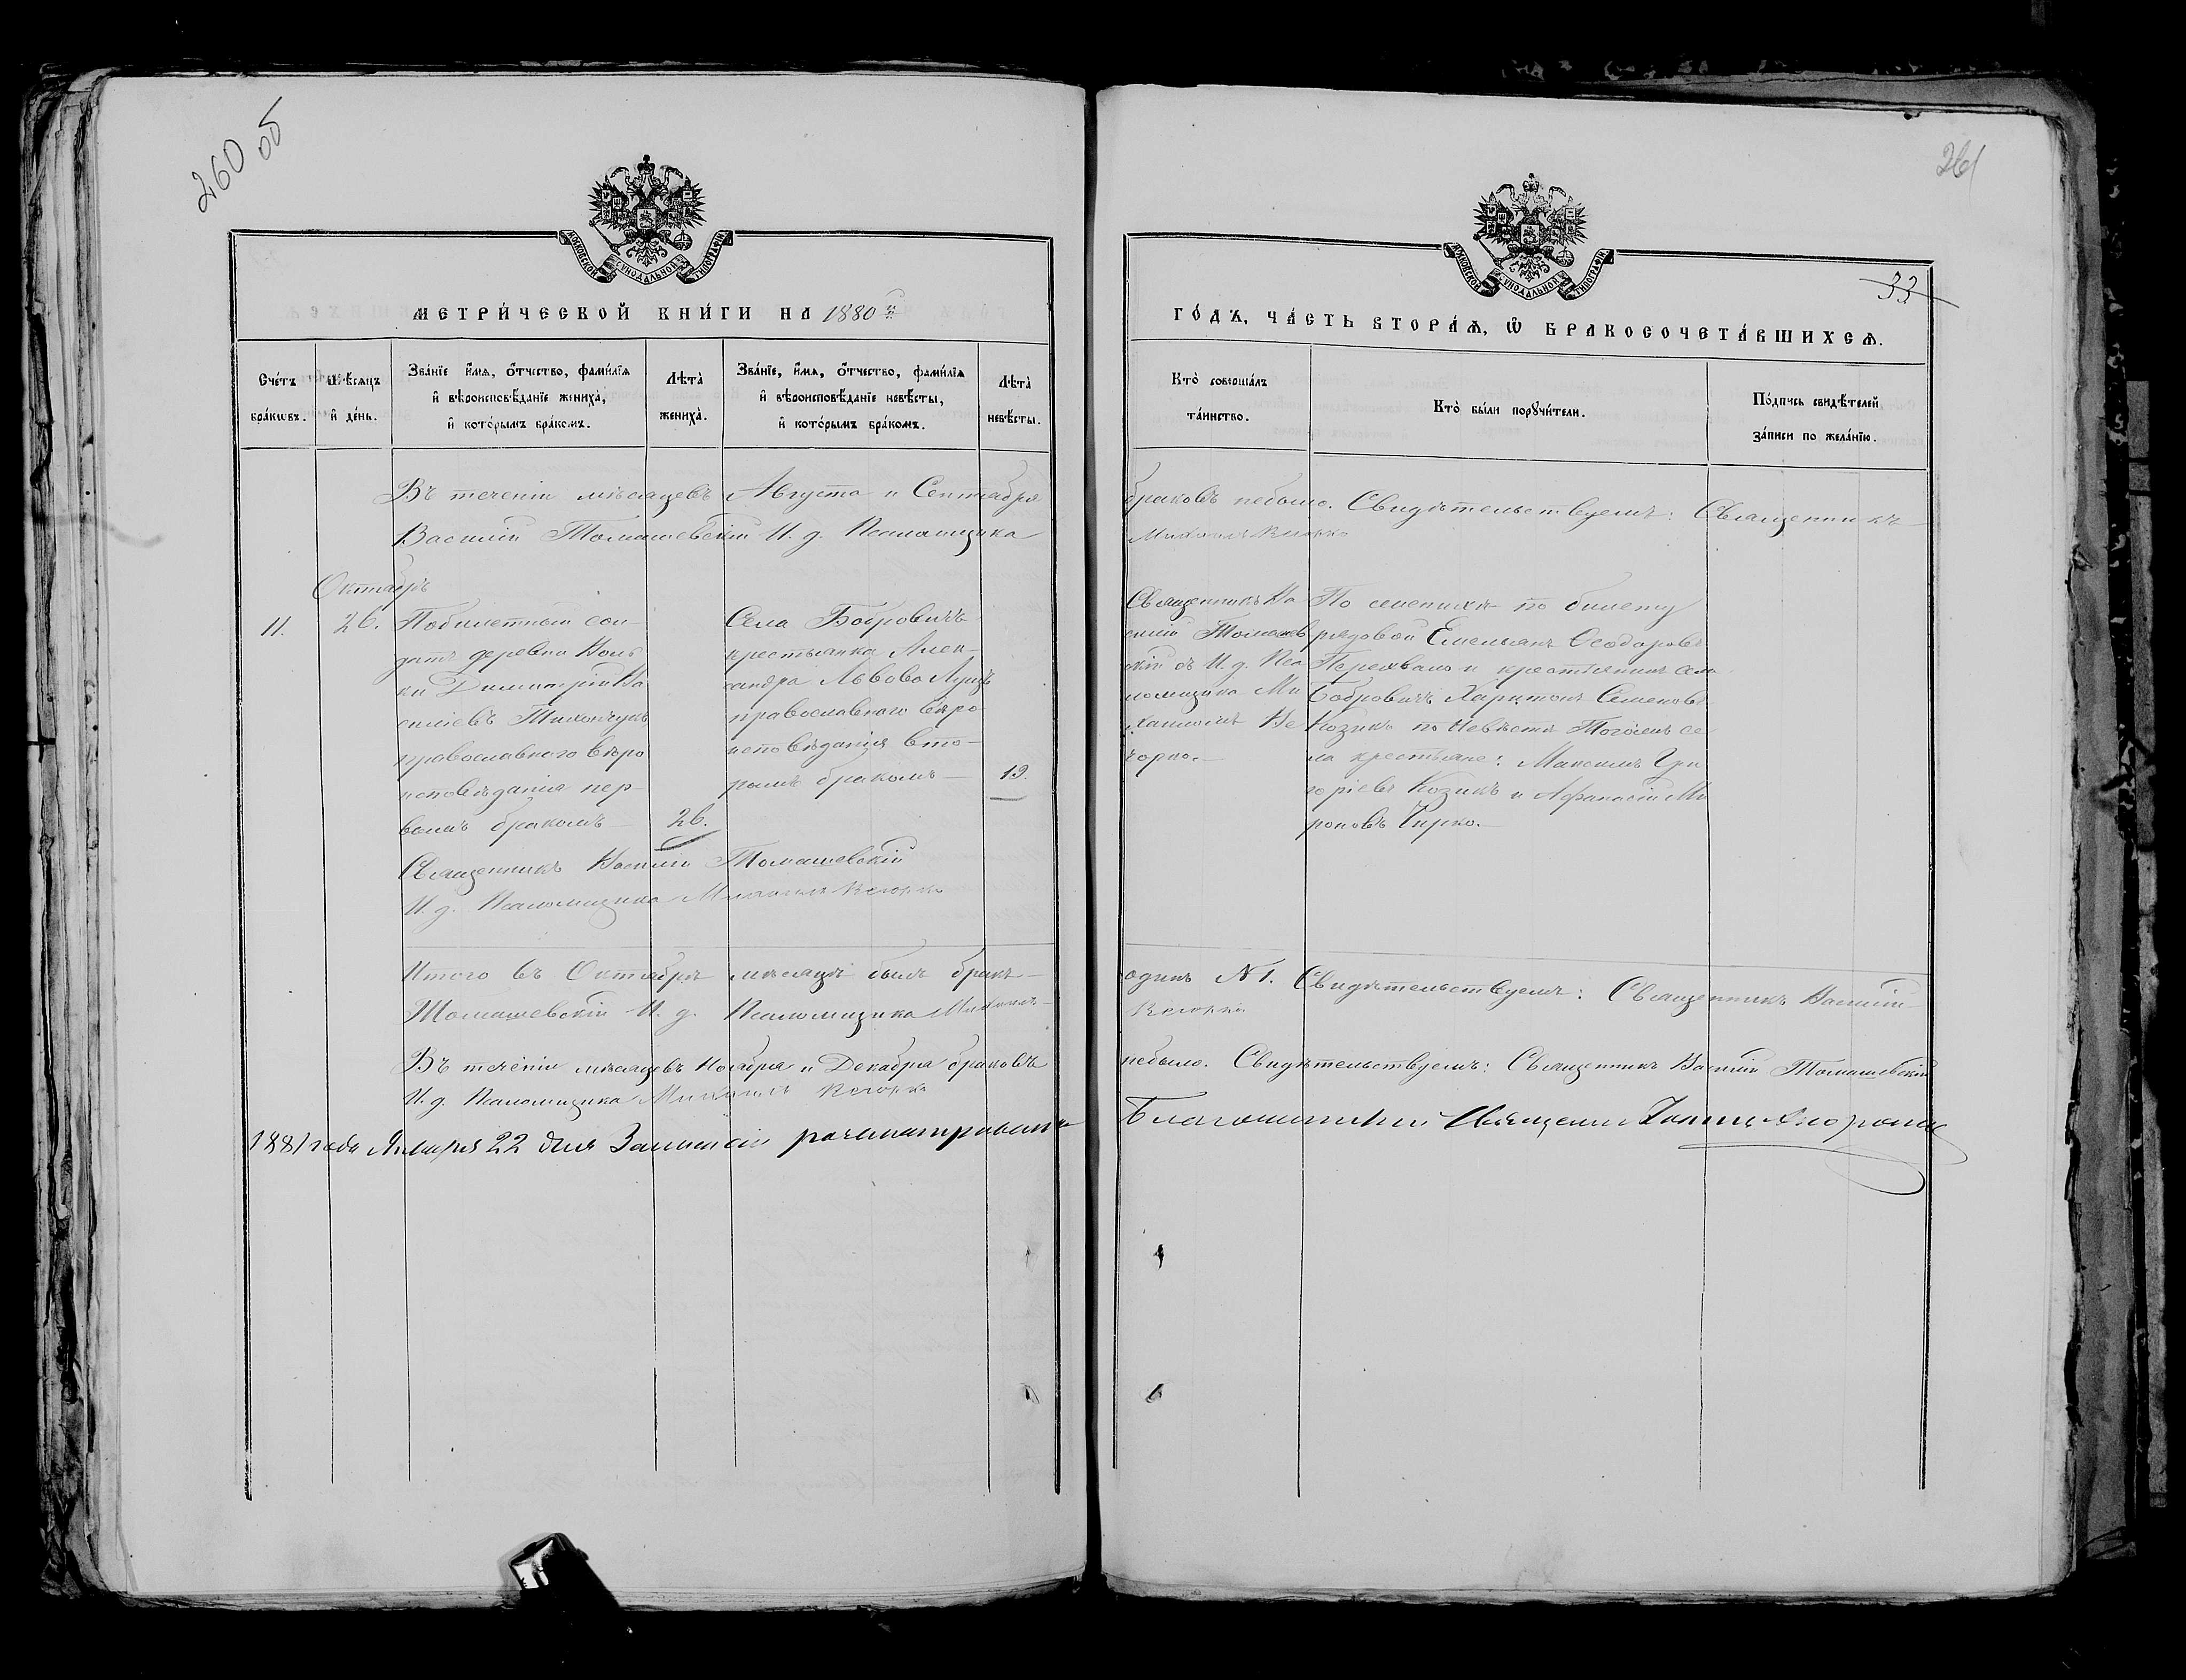 260 об
МОСКОВСКОЙ СѴНОДАЛЬНОЙ ТИПОГРАФІИ
МЕТРИ́ЧЕСКОЙ КНИ́ГИ НА 1880й
Сче́тъ бра́кѡвъ.
Мѣ́сяцъ и҆ де́нь.
Зва́нїе и҆́мѧ, ѻ҆́тчество, фами́лїѧ и҆ вѣроисповѣ́данїе жениха̀, и҆ кото́рымъ бра́комъ.
Лѣта̀ жениха̀.
Зва́нїе, и҆́мѧ, ѻ҆́тчество, фами́лїѧ и҆ вѣроисповѣ́данїе невѣ́сты, и҆ кото́рымъ бра́комъ.
Лѣта̀ невѣ́сты.
Въ теченіи мѣсяцевъ Августа и Сентября
Василій Томашевскій И. д. Псаломщика
Октябрь
11.
26.
Побилетный сол-
датъ деревни
Димитрій Ва
силіевъ Тихончукъ
православнаго вѣро
исповѣданія пер-
вымъ бракомъ
26.
Села Бобровичъ
крестьянка Алек-
сандра Львова
православнаго вѣро
исповѣданія вто-
рымъ бракомъ
19.
Священникъ Василій Томашевскій
И. д. Псаломщика Михаилъ
Итого въ Октябрѣ мѣсяцѣ былъ бракъ
Томашевскій И. д. Псаломщика Михаилъ
Въ теченіи мѣсяцевъ Ноября и Декабря браковъ
И. д. Псаломщика Михаилъ
1881 года Января 22 дня
261
МОСКОВСКОЙ СѴНОДАЛЬНОЙ ТИПОГРАФІИ
33
ГО́ДЪ, ЧА́СТЬ ВТОРА́Ѧ, Ѽ БРАКОСОЧЕТА́ВШИХСѦ.
Кто̀ соверша́лъ та́инство.
Кто̀ бы́ли порꙋчи́тели.
По́дпись свидѣ́телей за́писи по жела́нїю.
браковъ небыло. Свидѣтельствуемъ: Священникъ
Михаилъ
Священникъ Ва
силій Томашев
скій съ И. д. Пса
ломщика Ми
хаиломъ
По женихѣ по билету
рядовой Емельянъ Ѳеодоровъ
и крестьянинъ села
Бобровичъ Харитонъ Семеновъ
Козикъ по Невѣстѣ Тогожъ се
ла крестьяне: Максимъ Гри
горіевъ Козикъ и Афанасій Ми
роновъ Чирко.
одинъ № 1. Свидѣтельствуемъ: Священникъ Василій
небыло. Свидѣтельствуемъ: Священникъ Василій Томашевскій
Благочинный Священникъ